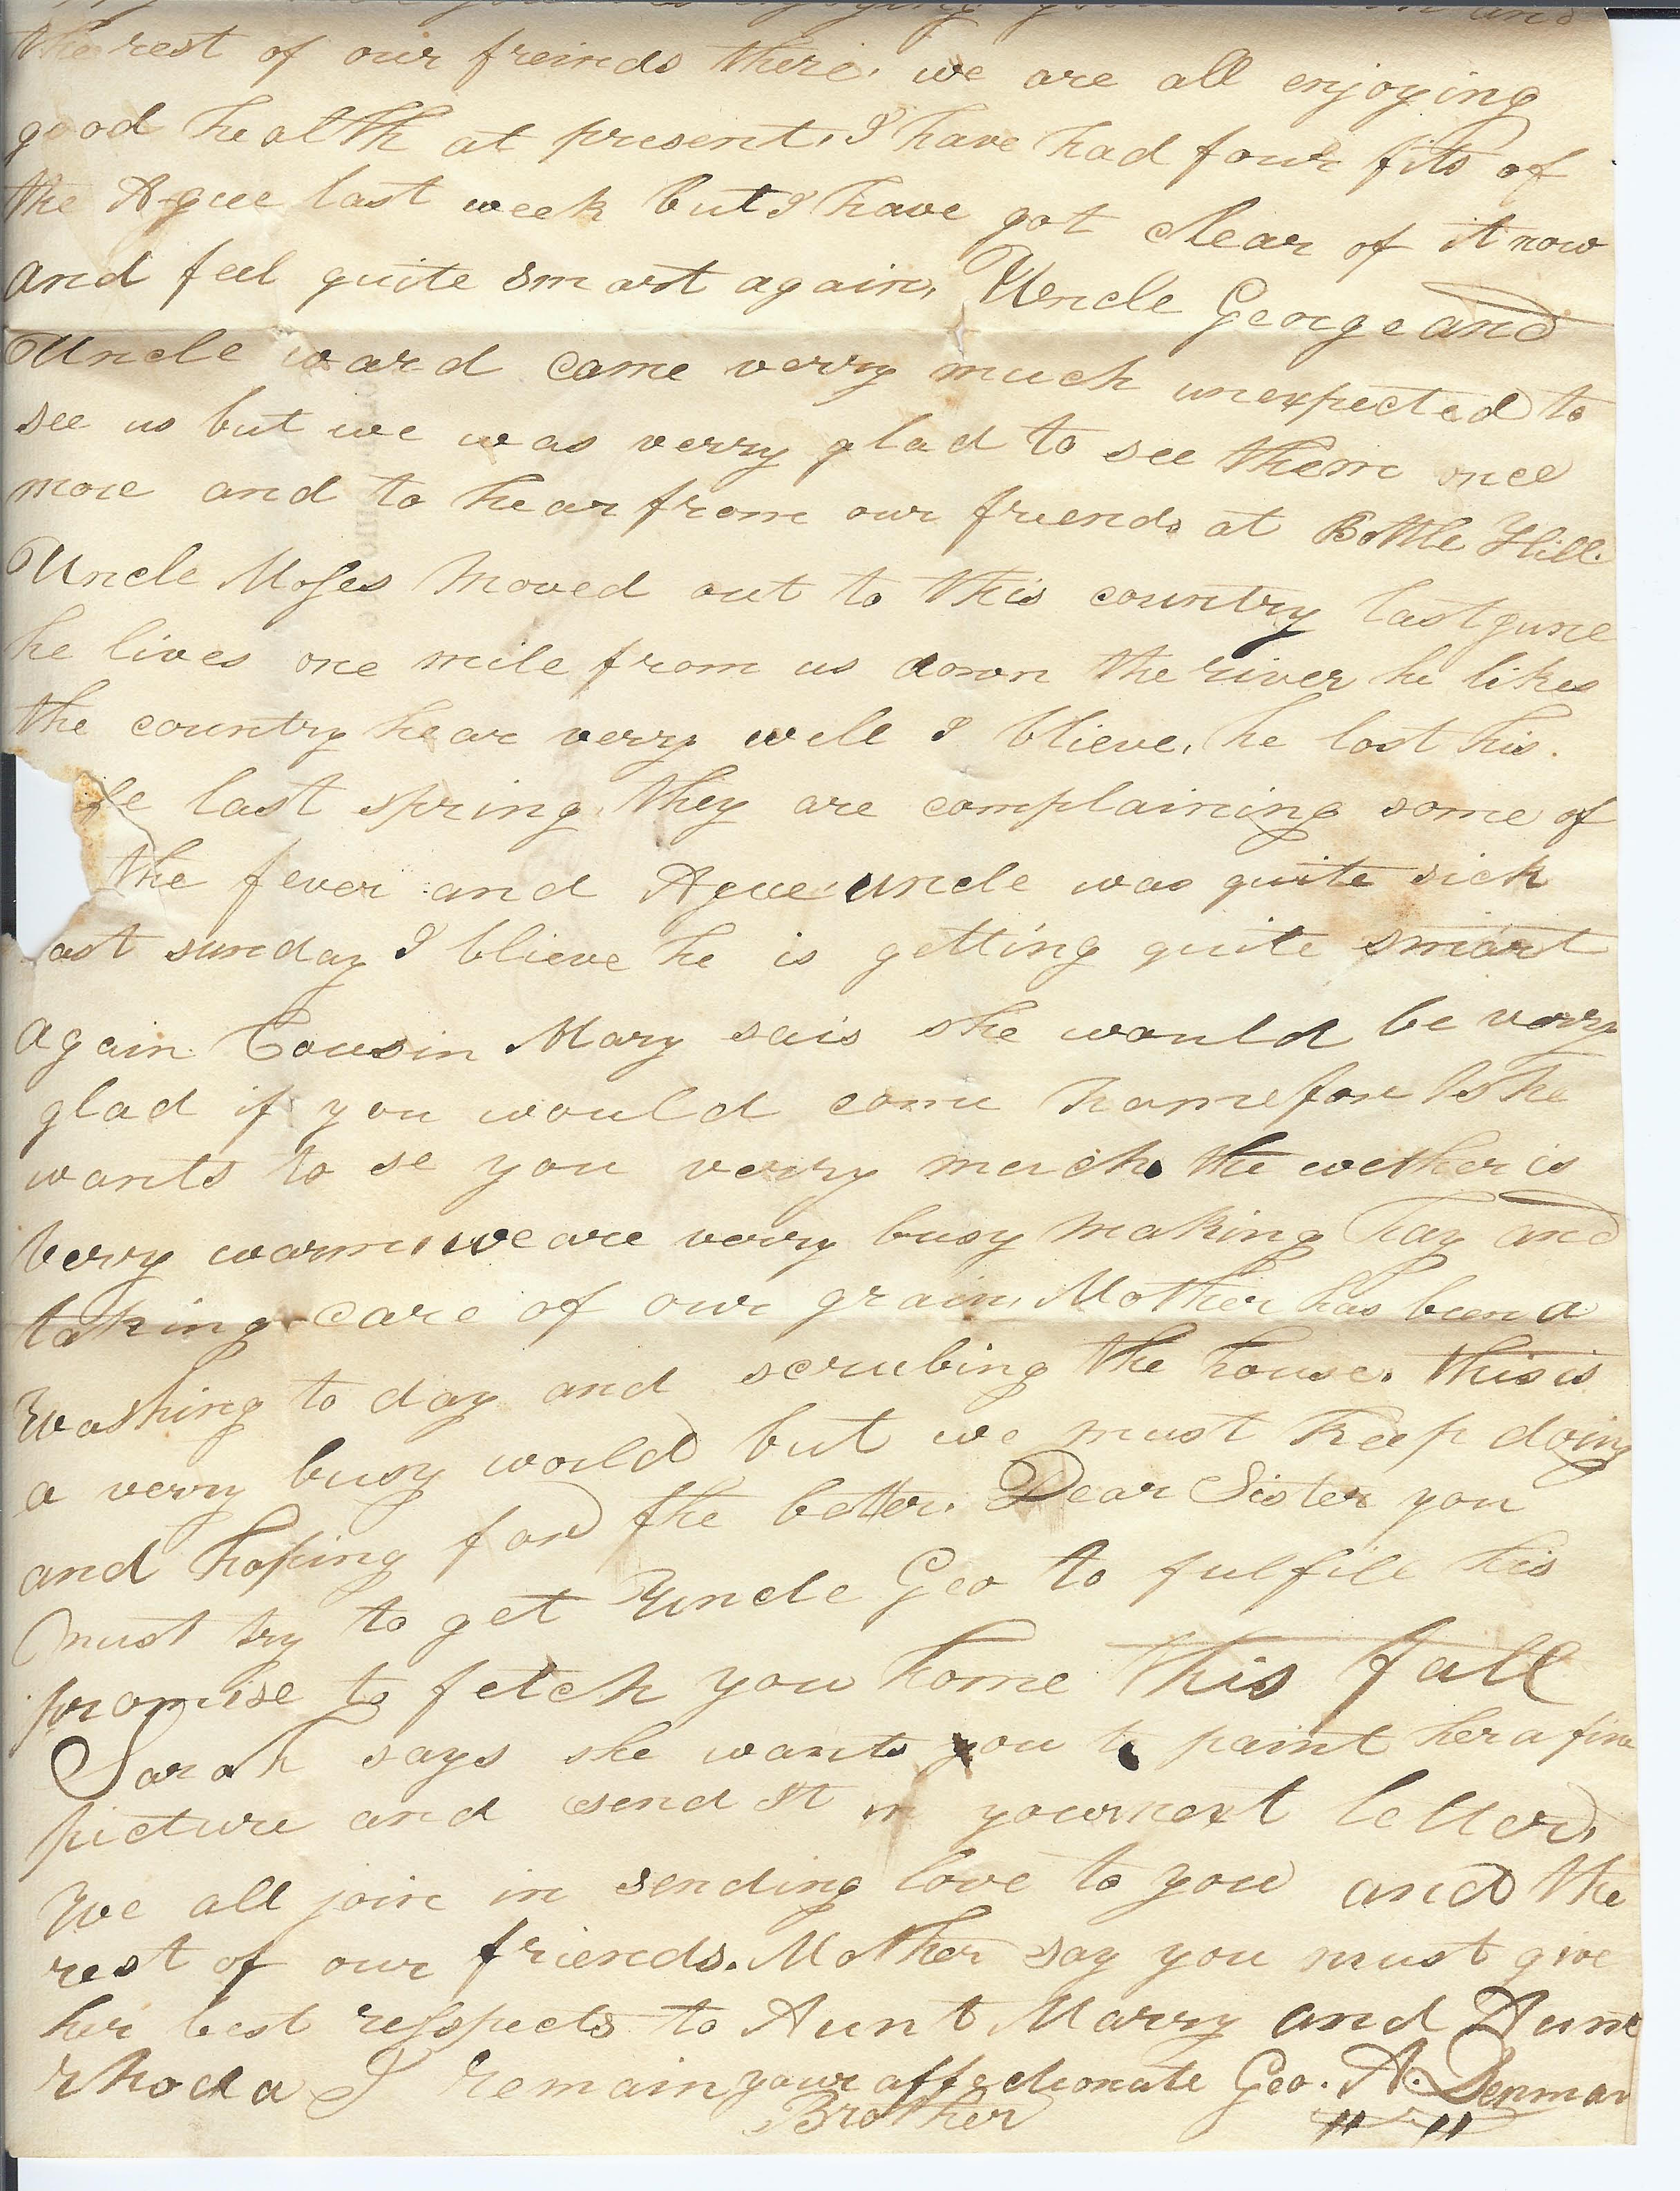 and
the rest of our freinds there, we are all enjoying
good health at present, I have had four fits of
the Ague last week but I have got clear of it now
and feel quite smart again, Uncle George and
Uncle ward came verry much unexpected to
see us but we was verry glad to see them once
more and to hear from our friends at Bottle Hill.
Uncle Moses moved out to this country last june
he lives one mile from us down the river he likes
the country hear verry well I blieve, he lost his.
ife last spring, they are complaining some of
the fever and Ague uncle was quite sick
ast sunday I blieve he is getting quite smart
again Cousin Mary sais she would be verry
glad if you would come home for she
wants to se you verry much. the wether is
verry warm, we are verry busy making hay and
taking care of our grain, Mother has been a
washing to day and scrubing the house. this is
a verry busy world but we must keep doing
and hoping for the better. Dear Sister you
must try to get Uncle Geo to fulfill his
promise to fetch you home this fall
Sarah says she wants you to paint her a fine
picture and send It in your next letter,
We all join in sending love to you and the
rest of our friends. Mother say you must give
her best respects to Aunt Marry and Aunt
Rhoda I remain your affectionate Geo. A. Denman
Brother